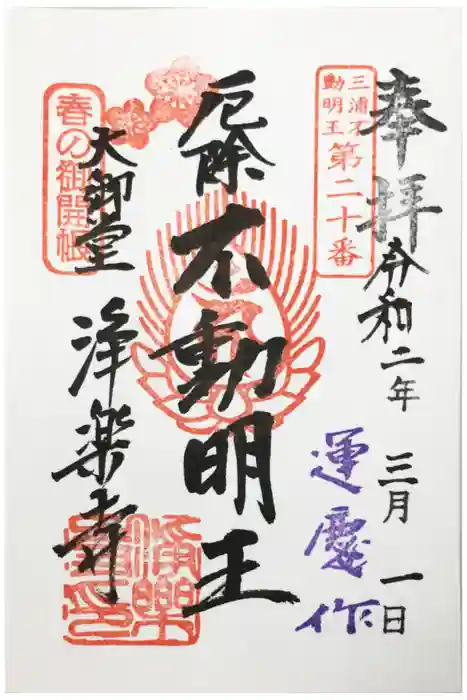 奉拝
令和二年 三月 一日
三浦不
動明王
第二十番
運慶作
厄除
不動明王
春の御開帳
大御堂
浄楽寺